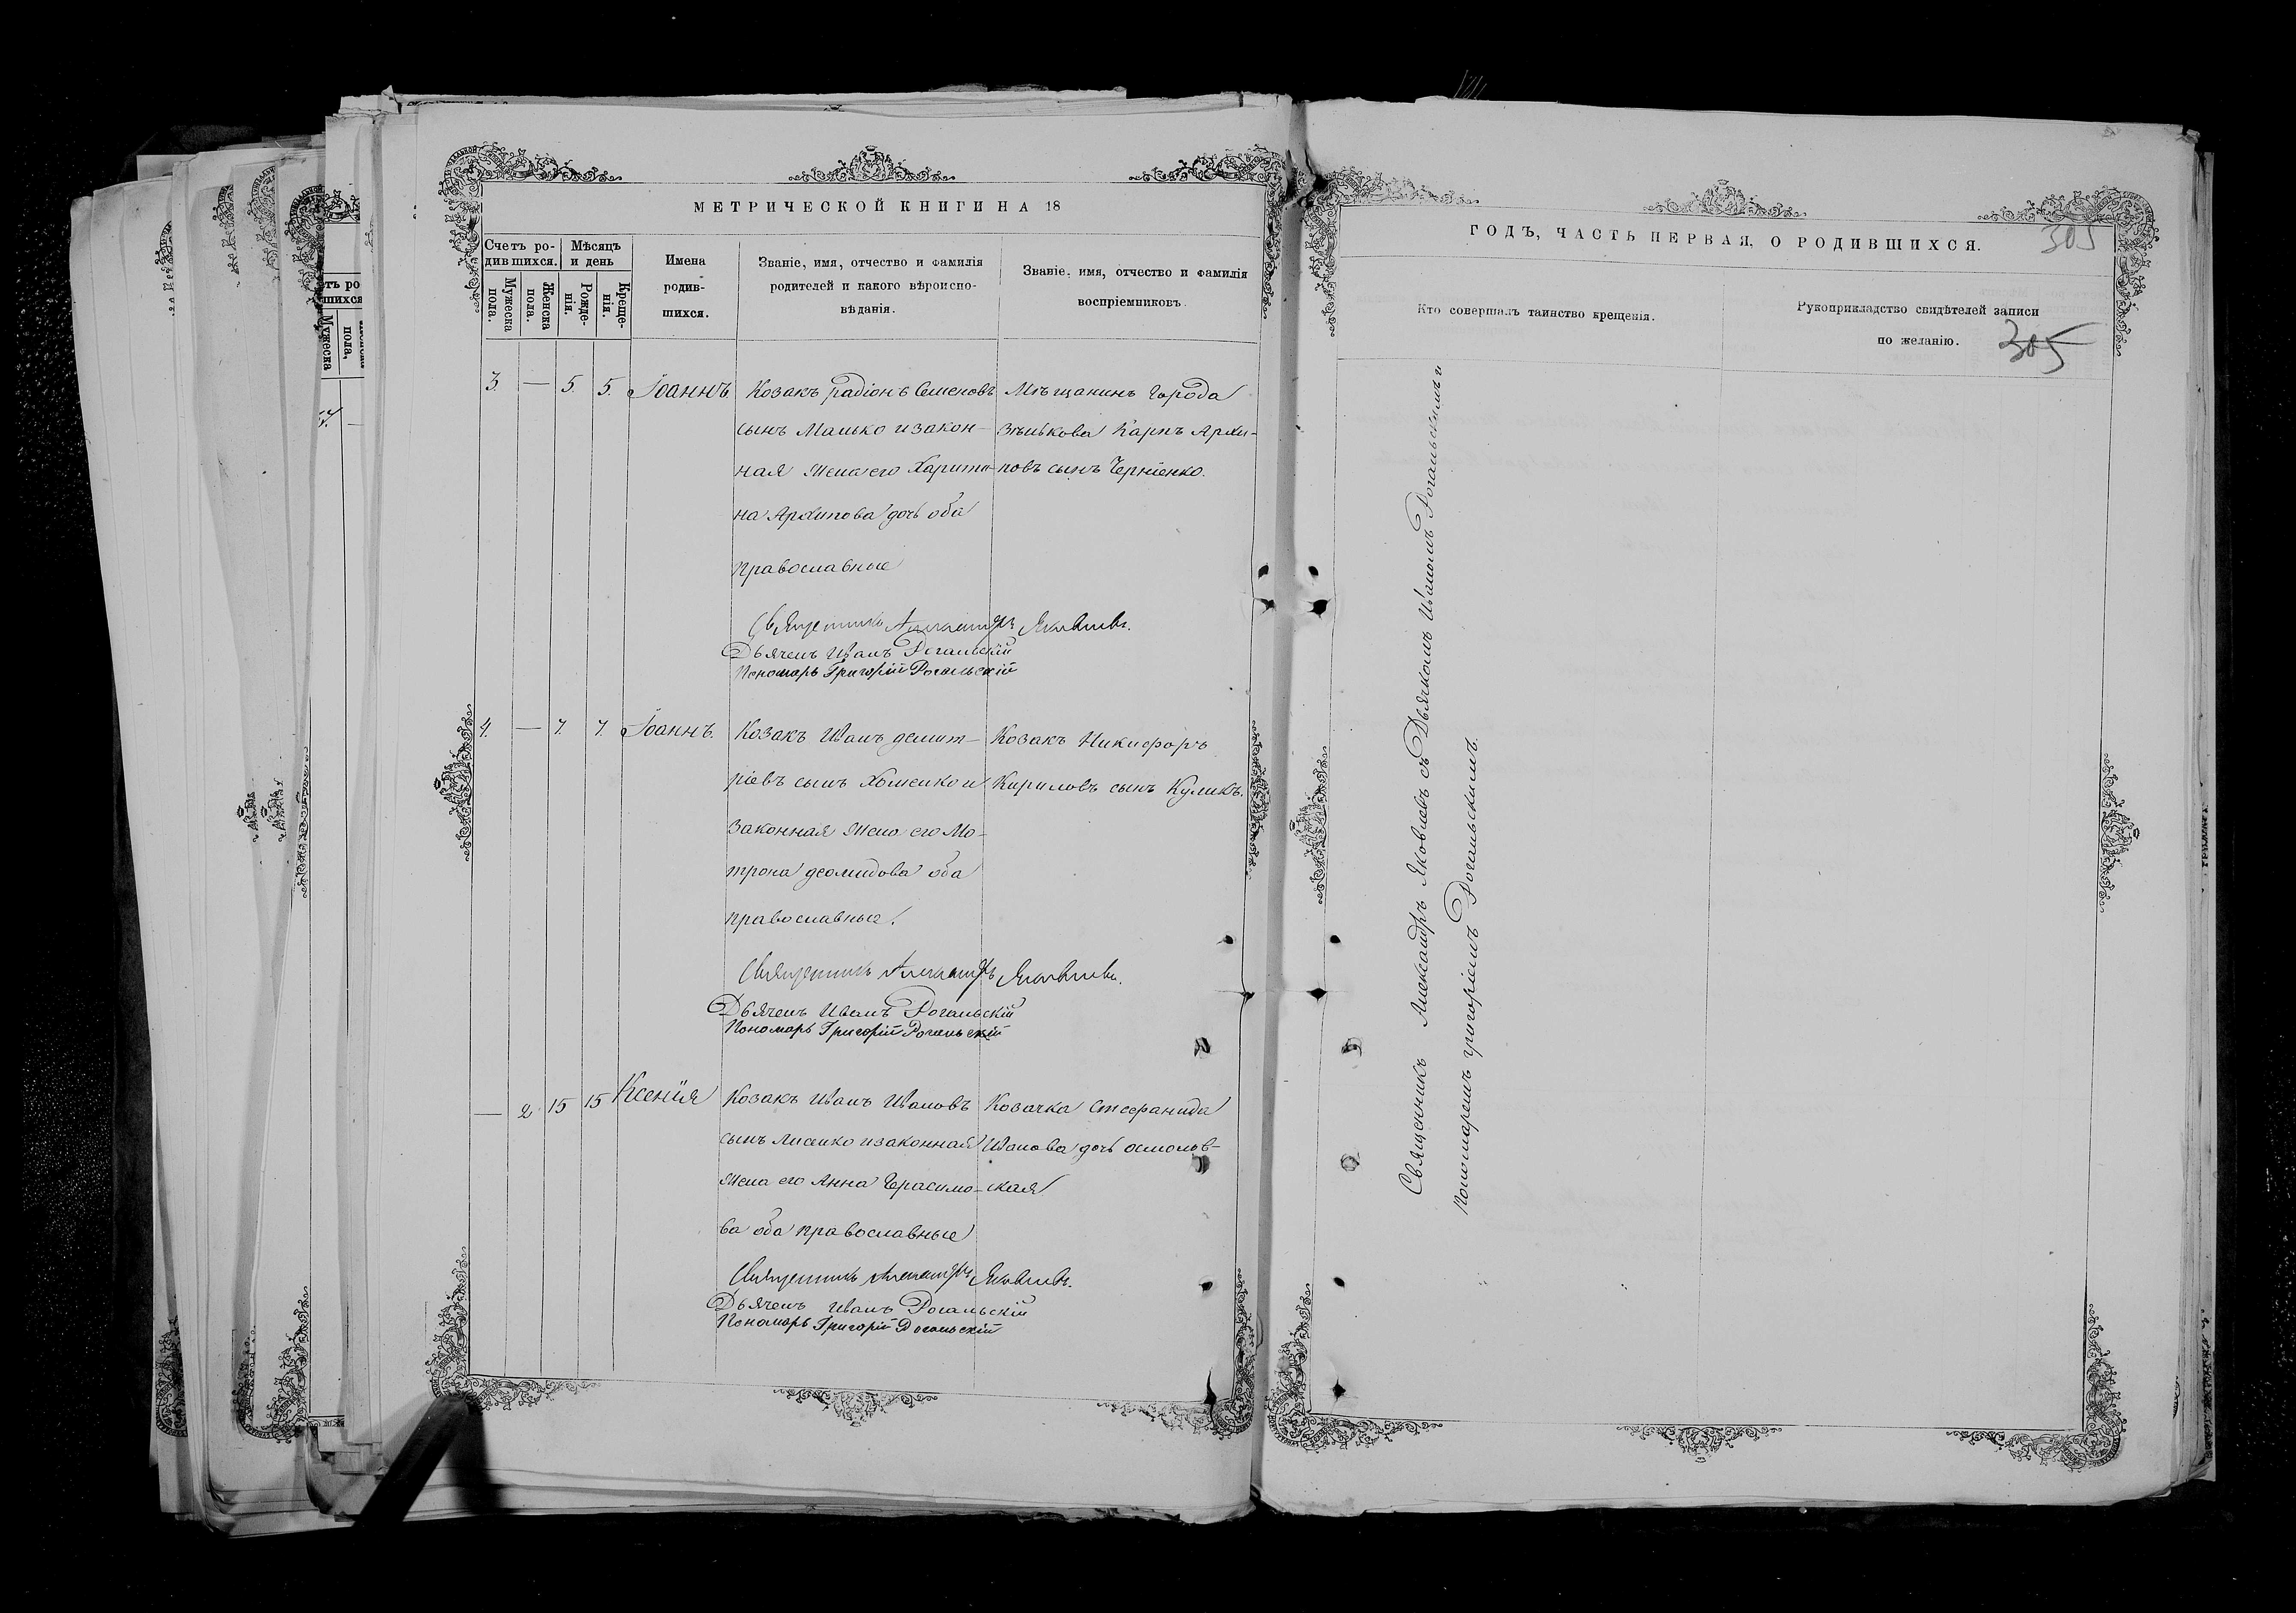 МЕТРИЧЕСКОЙ КНИГИ НА 18
Счетъ ро-
дившихся.
Мѣсяцъ
и день
Мужеска
пола.
Женска
пола.
Рожде-
нія.
Креще-
нія.
Имена
родив-
шихся.
Званіе, имя, отчество и фамилія
родителей и какого вѣроиспо-
вѣданія.
Званіе, имя, отчество и фамилія
воспріемниковъ.
3. — 5. 5. Іоаннъ.
Козакъ Радіонъ Семеновъ
сынъ Манько и закон-
ная жена его Харити-
на Архипова дочь оба
православные
Мѣщанинъ города
Зѣнькова Карпъ Архи-
повъ сынъ Черненко.
Священникъ Александръ Яковлевъ.
Дьячекъ Иванъ Рогальскій
Пономарь Григорій Рогальскій
4. — 7. 7. Іоаннъ.
Козакъ Иванъ Демит-
ріевъ сынъ Хоменко и
законная жена его Мо-
трона Деомидова оба
православные.
Козакъ Никифоръ
Кириловъ сынъ Куликъ.
Священникъ Александръ Яковлевъ.
Дьячекъ Иванъ Рогальскій
Пономарь Григорій Рогальскій
— 2 15 15 Ксенія
Козакъ Иванъ Ивановъ
сынъ Лисенко и законная
жена его Анна Герасимо-
ва оба православные
Козачка Стефанида
Иванова дочь Осмолов-
ская
Священникъ Александръ Яковлевъ.
Дьячекъ Иванъ Рогальскій
Пономарь Григорій Рогальскій
ГОДЪ, ЧАСТЬ ПЕРВАЯ, О РОДИВШИХСЯ.
305
Кто совершалъ таинство крещенія.
Рукоприкладство свидѣтелей записи
по желанію.
305
Священникъ Александръ Яковлевъ съ Дьячкомъ Иваномъ Рогальскимъ и
Пономаремъ Григоріемъ Рогальскимъ.